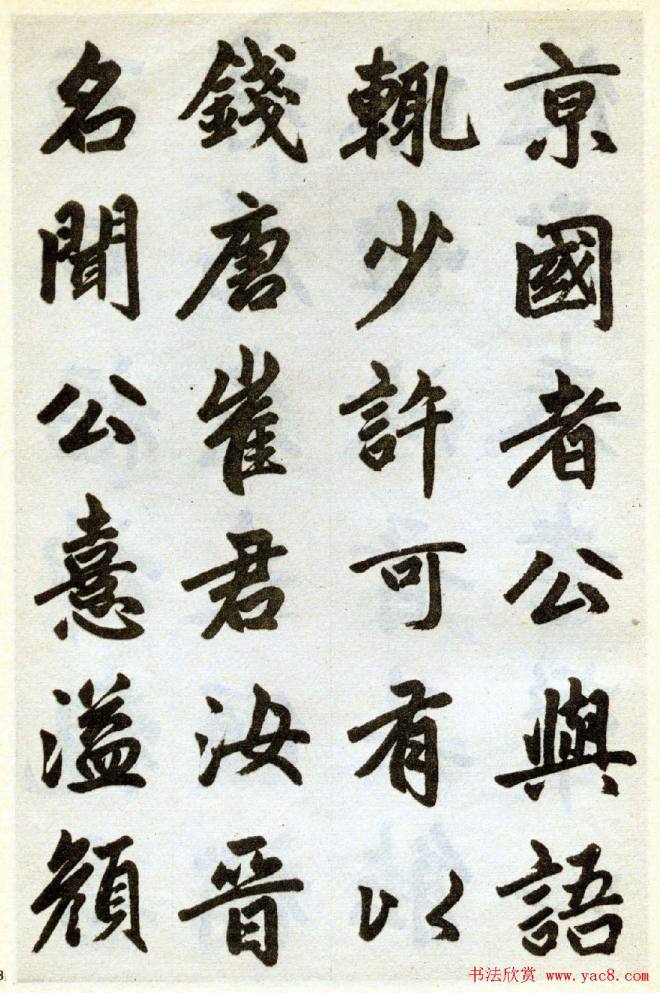 京國者公與語
輒少許可有以
錢唐崔君汝晉
名聞公憙溢顏
3
书法欣赏 www.yac8.com